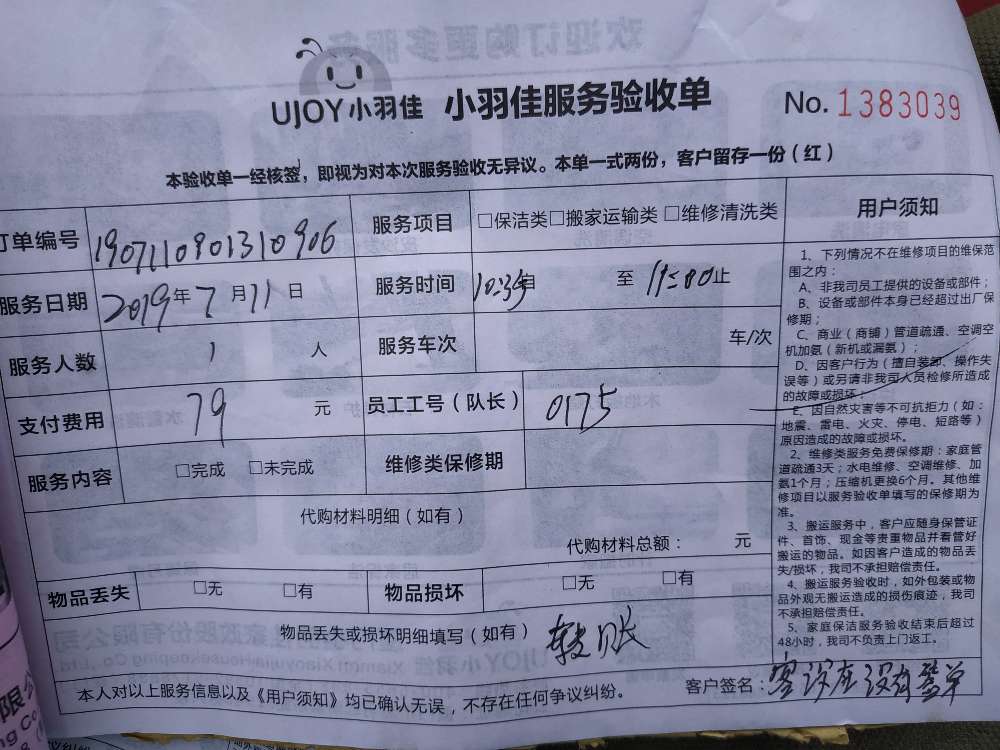 UJOY小羽佳 小羽佳服务验收单 No. 1383039
本验收单一经核签，即视为对本次服务验收无异议。本单一式两份，客户留存一份（红）
订单编号 190711090131 0906 服务项目 □保洁类□搬家运输类 □维修清洗类
服务日期 2019年7月11日 服务时间 10:35时 至 11:00止
服务人数 1 人 服务车次 车/次
支付费用 79 元 员工工号（队长） 0175
服务内容 □完成 □未完成 维修类保修期
代购材料明细（如有）
代购材料总额： 元
物品丢失 □无 □有 物品损坏 □无 □有
物品丢失或损坏明细填写（如有） 转账
本人对以上服务信息以及《用户须知》均已确认无误，不存在任何争议纠纷。 客户签名：客议在没有签单
用户须知
1、下列情况不在维修项目的维保范
围之内：
A、非我司员工提供的设备或部件；
B、设备或部件本身已经超过出厂保
修期；
C、商业（商铺）管道疏通、空调空
机加氨（新机或漏氨）；
D、因客户行为（擅自装卸、操作失
误等）或另请非我司人员检修所造成
的故障或损坏；
E、因自然灾害等不可抗拒力（如：
地震、雷电、火灾、停电、短路等）
原因造成的故障或损坏。
2、维修类服务免费保修期：家庭管
道疏通3天；水电维修、空调维修、加
氨1个月；压缩机更换6个月。其他维
修项目以服务验收单填写的保修期为
准。
3、搬运服务中，客户应随身保管证
件、首饰、现金等贵重物品并看管好
搬运的物品。如因客户造成的物品丢
失/损坏，我司不承担赔偿责任。
4、搬运服务验收时，如外包装或物
品外观无搬运造成的损伤痕迹，我司
不承担赔偿责任。
5、家庭保洁服务验收结束后超过
48小时，我司不负责上门返工。